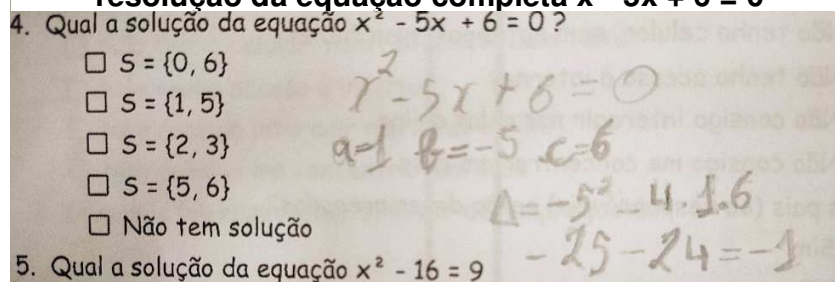 resolução da equação completa x² - 5x + 6 = 0
4. Qual a solução da equação x² - 5x + 6 = 0 ?
☐ S = {0, 6}
☐ S = {1, 5}
☐ S = {2, 3}
☐ S = {5, 6}
☐ Não tem solução
x² - 5x + 6 = 0
a=1 b=-5 c=6
Δ = -5² - 4.1.6
- 25 - 24 = -1
5. Qual a solução da equação x² - 16 = 9